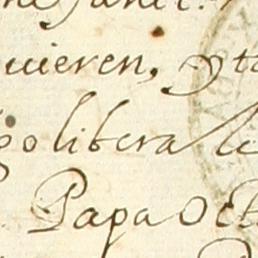 uieren, y to
go libera le
Papa Oct